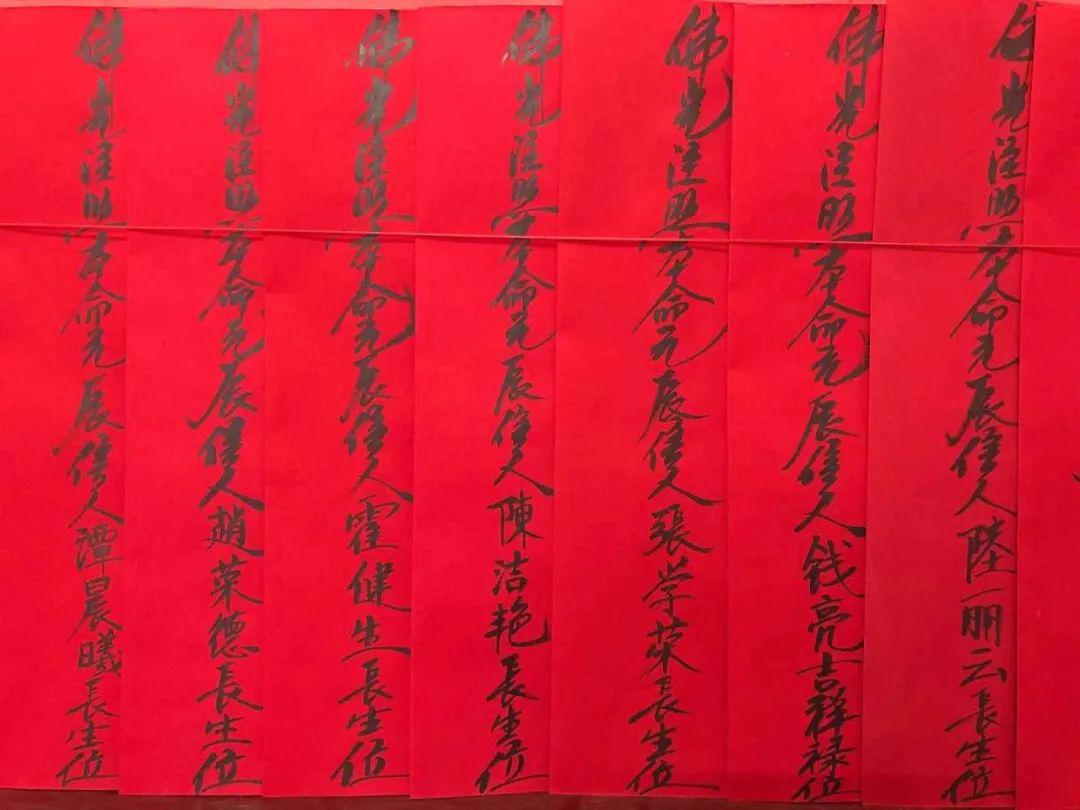 佛光注照本命元辰信人陸丽云長生位
佛光注照本命元辰信人钱亮吉祥禄位
佛光注照本命元辰信人張学荣長生位
佛光注照本命元辰信人陳洁艳長生位
佛光注照本命元辰信人霍健生長生位
佛光注照本命元辰信人趙菜德長生位
佛光注照本命元辰信人潭晨曦長生位